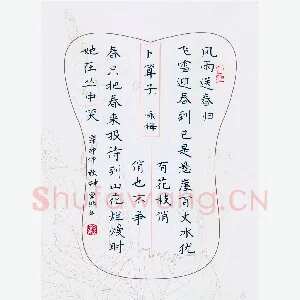 卜算子
咏梅
风雨送春归
飞雪迎春到已是悬崖百丈冰犹
有花枝俏
俏也不争
春只把春来报待到山花烂熳时
她在丛中笑
Shufawang.CN